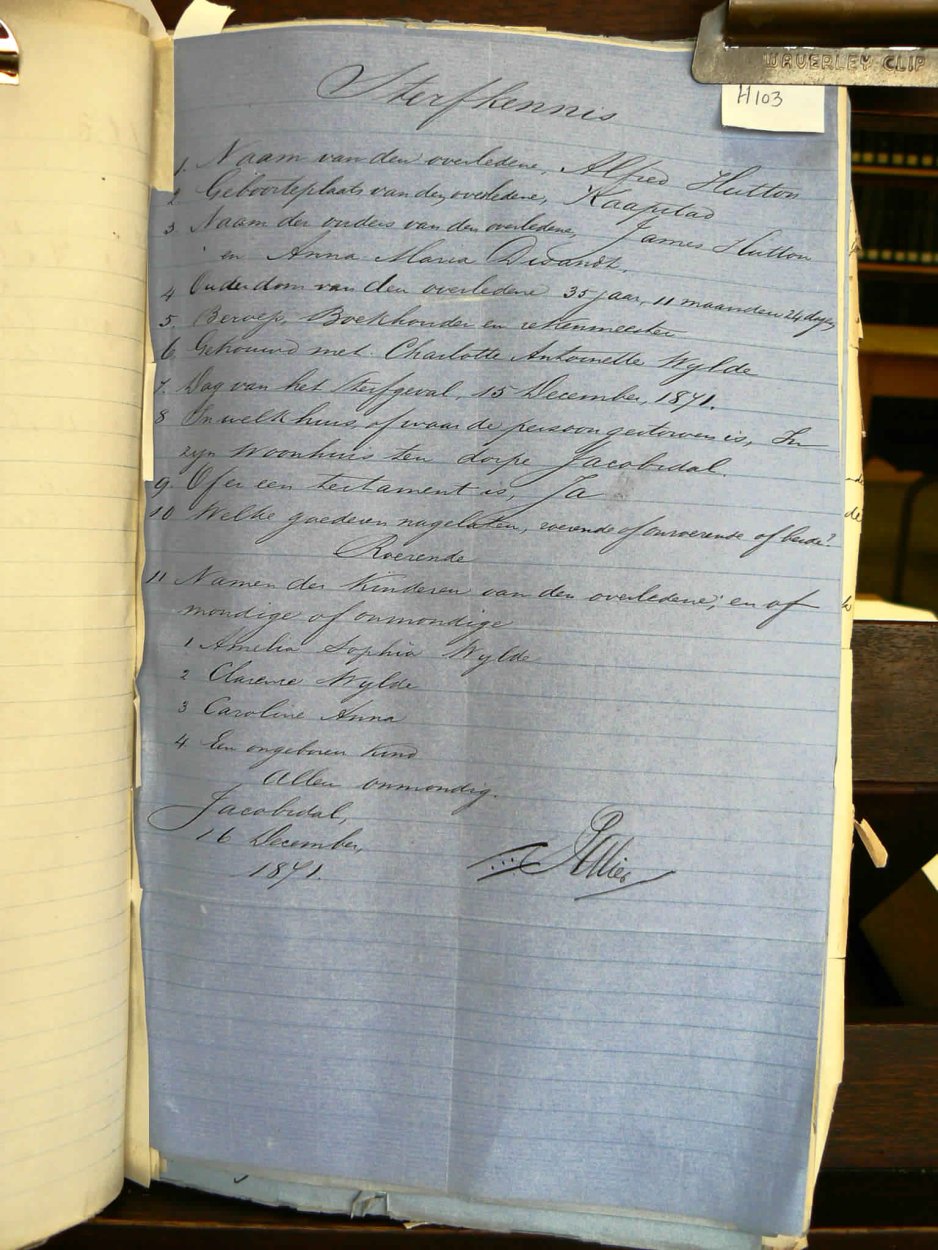 WAVERLEY CLIP
H103
Sterfkennis
1. Naam van den overledene, Alfred Hutton
2 Geboorteplaats van den overledene, Kaapstad
3 Naam der ouders van den overledene, James Hutton
en Anna Maria
4 Ouderdom van den overledene 35 jaar, 11 maanden 24 dagen
5. Beroep, Boekhouder en rekenmeester
6. Gehouwd met Charlotte Antoinette Wylde
7. Dag van het Sterfgeval, 15 December, 1871.
8 In welk huis, of waar de persoon gestorven is, In
zyn Woonhuis ten dorpe Jacobsdal.
9. Of er een testament is, Ja
10 Welke goederen nagelaten, roerende of onroerende of beide?
Roerende
11 Namen der Kinderen van den overledene, en of
mondige of onmondige
1 Amelia Sophia Wylde
2 Clarence Wylde
3 Caroline Anna
4. Een ongeboren kind
Allen onmondig.
Jacobsdal,
16 December,
1871.